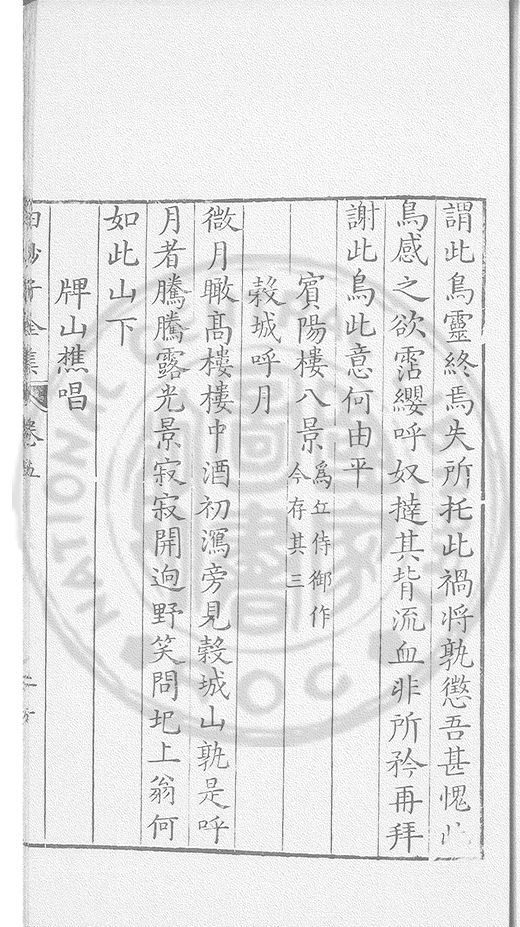 謂此鳥靈終焉失所托此禍將孰懲吾甚愧此
鳥感之欲霑纓呼奴撻其背流血非所矜再拜
謝此鳥此意何由平
賓陽樓八景 為丘侍御作
今存其三
穀城呼月
微月瞰髙樓樓中酒初瀉旁見穀城山孰是呼
月者騰騰露光景寂寂開逈野笑問圯上翁何
如此山下
牌山樵唱
全集 卷五
NATIONAL